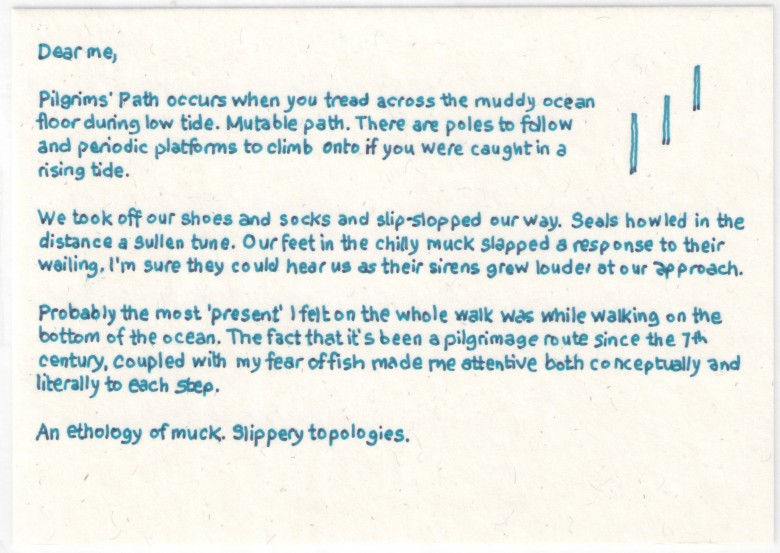 Dear me,
Pilgrims' Path occurs when you tread across the muddy ocean
floor during low tide. Mutable path. There are poles to follow
and periodic platforms to climb onto if you were caught in a
rising tide.
We took off our shoes and socks and slip-slopped our way. Seals howled in the
distance a sullen tune. Our feet in the chilly muck slapped a response to their
wailing. I'm sure they could hear us as their sirens grew louder at our approach.
Probably the most 'present' I felt on the whole walk was while walking on the
bottom of the ocean. The fact that it's been a pilgrimage route since the 7th
century, coupled with my fear of fish made me attentive both conceptually and
literally to each step.
An ethology of muck. Slippery topologies.